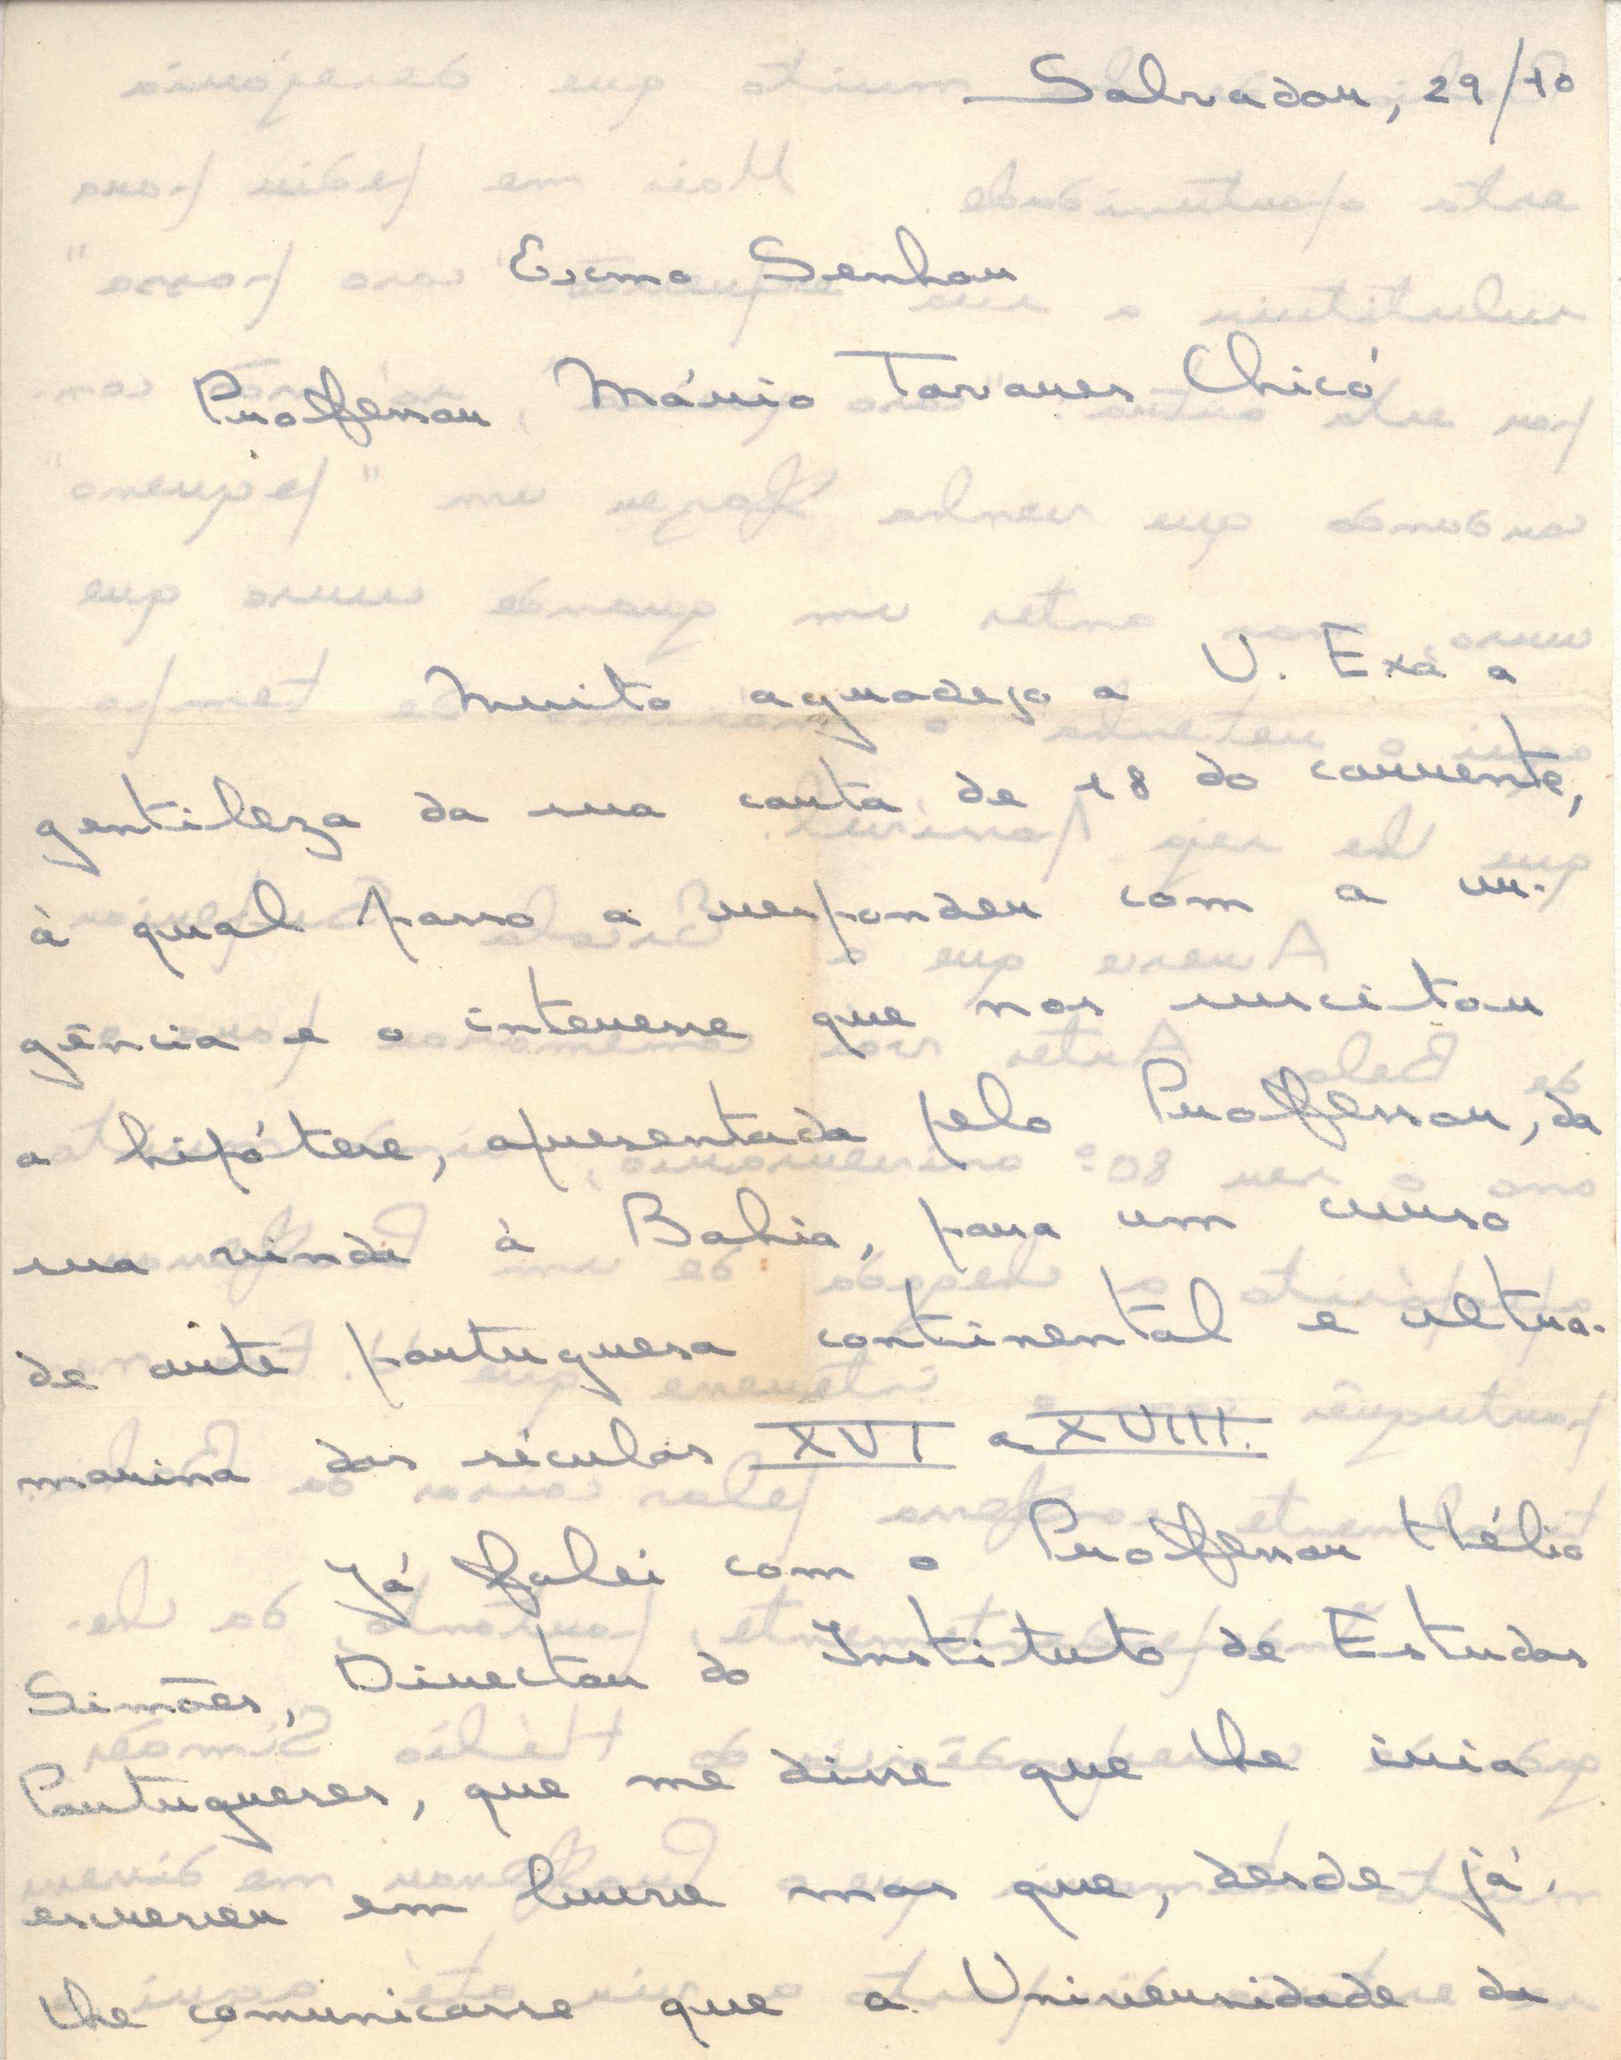 Salvador, 29/10
Excmo Senhor
Professor Mário Tavares Chicó
Muito agradeço a V. Exa a
gentileza da sua carta de 18 do corrente,
à qual passo a responder com a ur-
gência e o interesse que nos suscitou
a hipótese, apresentada pelo Professor, da
sua vinda à Bahia, para um curso
de arte portuguesa continental e ultra-
marina dos séculos XVI a XVIII.
Já falei com o Professor Hélio
Simões, Director do Instituto de Estudos
Portugueses, que me disse que lhe iria
escrever em breve mas que, desde já,
lhe comunicasse que a Universidade da